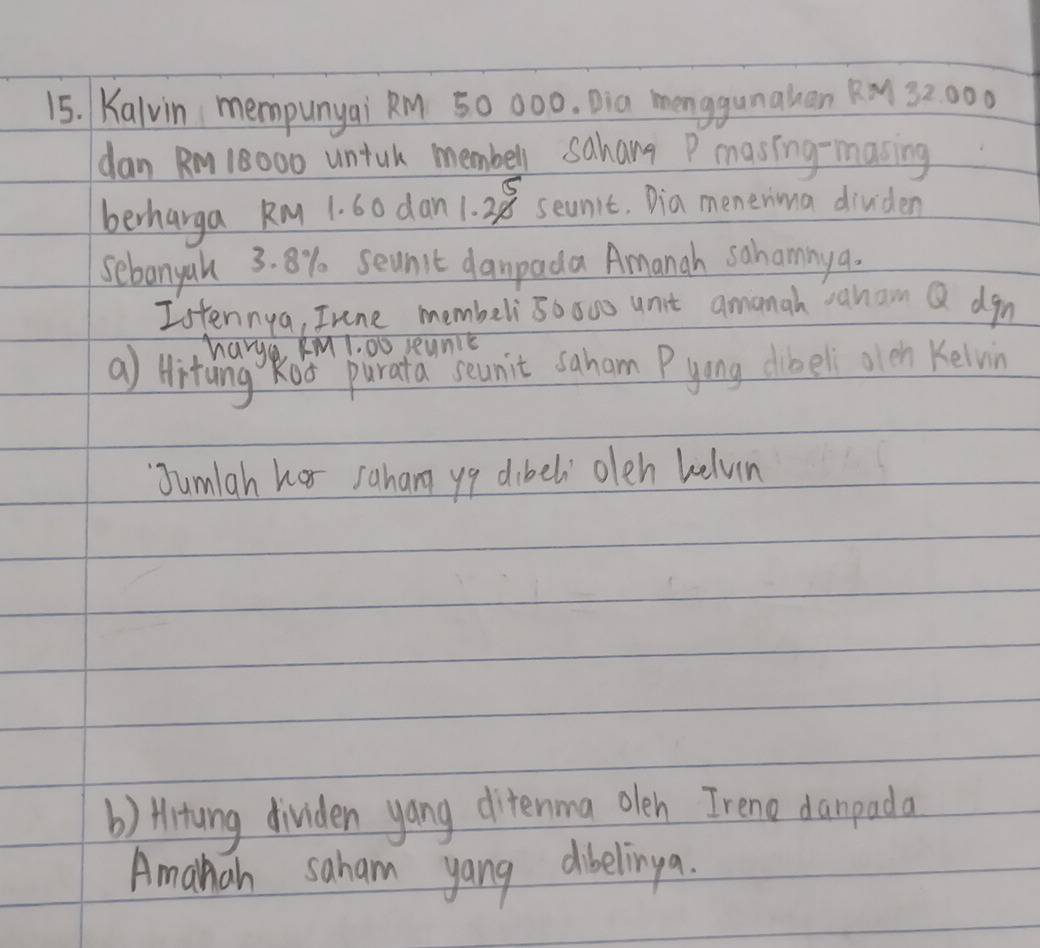 15. Kalvin mempunyai RM 50 000. Dia menggunakan RM 32.000
dan RM 18000 untuk membeli saham P masing-masing
berharga RM 1.60 dan 1.25 seunit. Dia menerima dividen
sebanyak 3.8% seunit daripada Amanah sahamnya.
Isterinya, Irene membeli 50000 unit amanah saham Q dgn
harga RM 1.00 seunit
a) Hitung Kos purata seunit saham P yang dibeli oleh Kelvin
Jumlah kos saham yg dibeli oleh kelvin
b) Hitung dividen yang diterima oleh Irene daripada
Amanah saham yang dibelinya.